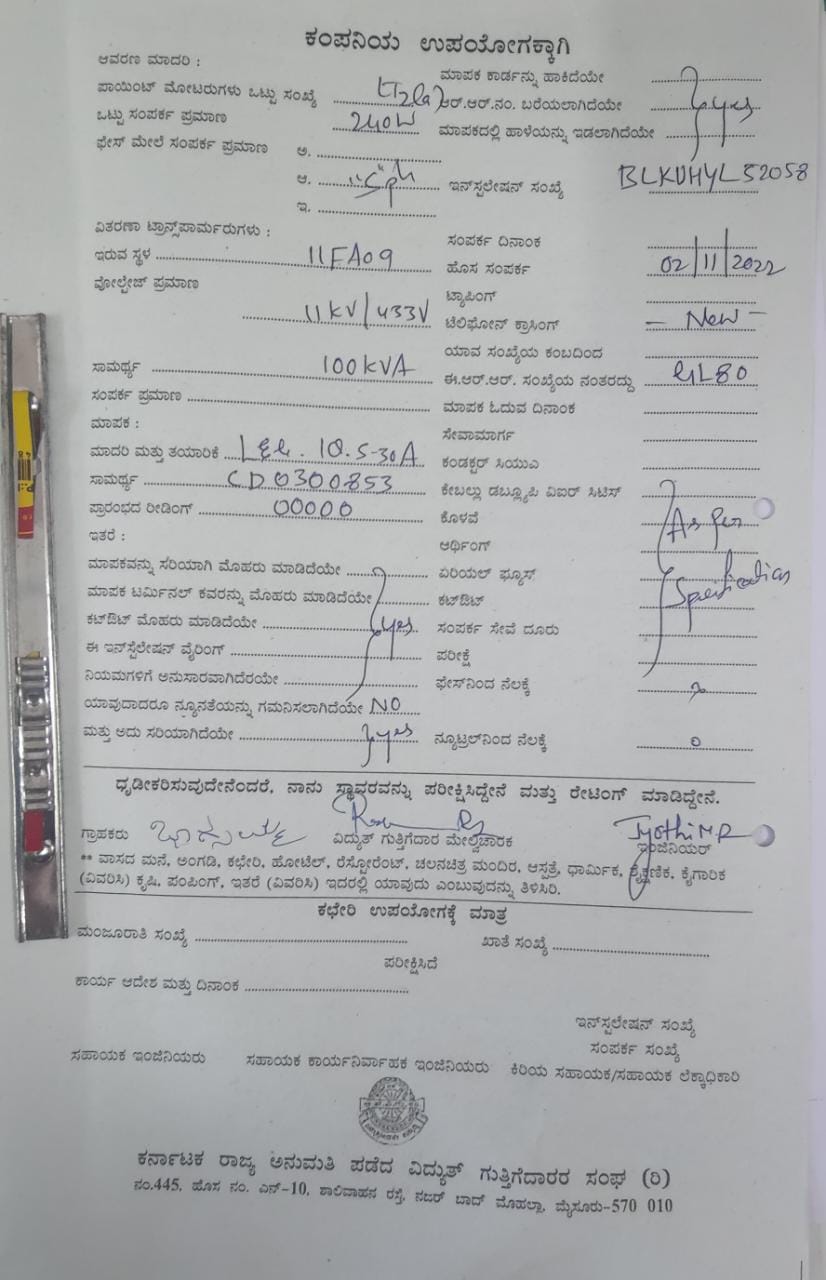 ಕಂಪನಿಯ ಉಪಯೋಗಕ್ಕಾಗಿ
ಆವರಣ ಮಾದರಿ :
ಮಾಪಕ ಕಾರ್ಡನ್ನು ಹಾಕಿದೆಯೇ
ಪಾಯಿಂಟ್ ಮೋಟರುಗಳು ಒಟ್ಟು ಸಂಖ್ಯೆ
ಆರ್.ಆರ್.ನಂ. ಬರೆಯಲಾಗಿದೆಯೇ yes
ಒಟ್ಟು ಸಂಪರ್ಕ ಪ್ರಮಾಣ 240W
ಮಾಪಕದಲ್ಲಿ ಹಾಳೆಯನ್ನು ಇಡಲಾಗಿದೆಯೇ
ಫೇಸ್ ಮೇಲೆ ಸಂಪರ್ಕ ಪ್ರಮಾಣ ಅ.
ಆ.
ಇನ್‌ಸ್ಪಲೇಷನ್ ಸಂಖ್ಯೆ BLKUHYL52058
ಇ.
ವಿತರಣಾ ಟ್ರಾನ್ಸ್‌ಪಾರ್ಮರುಗಳು :
ಸಂಪರ್ಕ ದಿನಾಂಕ
ಇರುವ ಸ್ಥಳ 11FA09
ಹೊಸ ಸಂಪರ್ಕ 02/11/2022
ವೋಲ್ಟೇಜ್ ಪ್ರಮಾಣ
ಟ್ಯಾಪಿಂಗ್
11KV/433V
ಟೆಲಿಫೋನ್ ಕ್ರಾಸಿಂಗ್ - New -
ಯಾವ ಸಂಖ್ಯೆಯ ಕಂಬದಿಂದ
ಸಾಮರ್ಥ್ಯ 100KVA
ಈ.ಆರ್.ಆರ್. ಸಂಖ್ಯೆಯ ನಂತರದ್ದು
ಸಂಪರ್ಕ ಪ್ರಮಾಣ
ಮಾಪಕ ಓದುವ ದಿನಾಂಕ
ಮಾಪಕ :
ಸೇವಾಮಾರ್ಗ
ಮಾದರಿ ಮತ್ತು ತಯಾರಿಕೆ
ಕಂಡಕ್ಟರ್ ಸಿಯುಎ
ಸಾಮರ್ಥ್ಯ CD0300853
ಕೇಬಲ್ಲು ಡಬ್ಲ್ಯೂಪಿ ವಿಐರ್ ಸಿಟಿಸ್
ಪ್ರಾರಂಭದ ರೀಡಿಂಗ್ 00000
ಕೊಳವೆ As per
ಇತರೆ :
ಆರ್ಥಿಂಗ್
ಮಾಪಕವನ್ನು ಸರಿಯಾಗಿ ಮೊಹರು ಮಾಡಿದೆಯೇ
ಏರಿಯಲ್ ಫ್ಯೂಸ್ Specification
ಮಾಪಕ ಟರ್ಮಿನಲ್ ಕವರನ್ನು ಮೊಹರು ಮಾಡಿದೆಯೇ
ಕಟ್‌ಔಟ್
ಕಟ್‌ಔಟ್ ಮೊಹರು ಮಾಡಿದೆಯೇ yes
ಸಂಪರ್ಕ ಸೇವೆ ದೂರು
ಈ ಇನ್‌ಸ್ಟೆಲೇಷನ್ ವೈರಿಂಗ್
ಪರೀಕ್ಷೆ
ನಿಯಮಗಳಿಗೆ ಅನುಸಾರವಾಗಿದೆರಯೇ
ಫೇಸ್‌ನಿಂದ ನೆಲಕ್ಕೆ
ಯಾವುದಾದರೂ ನ್ಯೂನತೆಯನ್ನು ಗಮನಿಸಲಾಗಿದೆಯೇ NO
ಮತ್ತು ಅದು ಸರಿಯಾಗಿದೆಯೇ yes
ನ್ಯೂಟ್ರಲ್‌ನಿಂದ ನೆಲಕ್ಕೆ 0
ಧೃಡೀಕರಿಸುವುದೇನೆಂದರೆ, ನಾನು ಸ್ಥಾವರವನ್ನು ಪರೀಕ್ಷಿಸಿದ್ದೇನೆ ಮತ್ತು ರೇಟಿಂಗ್ ಮಾಡಿದ್ದೇನೆ.
Jyothi M R
ಗ್ರಾಹಕರು ವಿದ್ಯುತ್ ಗುತ್ತಿಗೆದಾರ ಮೇಲ್ವಿಚಾರಕ ಇಂಜಿನಿಯರ್
** ವಾಸದ ಮನೆ, ಅಂಗಡಿ, ಕಛೇರಿ, ಹೋಟೆಲ್, ರೆಸ್ಟೋರೆಂಟ್, ಚಲನಚಿತ್ರ ಮಂದಿರ, ಆಸ್ಪತ್ರೆ, ಧಾರ್ಮಿಕ, ಶೈಕ್ಷಣಿಕ, ಕೈಗಾರಿಕ
(ವಿವರಿಸಿ) ಕೃಷಿ, ಪಂಪಿಂಗ್, ಇತರೆ (ವಿವರಿಸಿ) ಇದರಲ್ಲಿ ಯಾವುದು ಎಂಬುವುದನ್ನು ತಿಳಿಸಿರಿ.
ಕಛೇರಿ ಉಪಯೋಗಕ್ಕೆ ಮಾತ್ರ
ಮಂಜೂರಾತಿ ಸಂಖ್ಯೆ
ಖಾತೆ ಸಂಖ್ಯೆ
ಪರೀಕ್ಷಿಸಿದೆ
ಕಾರ್ಯ ಆದೇಶ ಮತ್ತು ದಿನಾಂಕ
ಇನ್‌ಸ್ಪಲೇಷನ್ ಸಂಖ್ಯೆ
ಸಂಪರ್ಕ ಸಂಖ್ಯೆ
ಸಹಾಯಕ ಇಂಜಿನಿಯರು ಸಹಾಯಕ ಕಾರ್ಯನಿರ್ವಾಹಕ ಇಂಜಿನಿಯರು ಕಿರಿಯ ಸಹಾಯಕ/ಸಹಾಯಕ ಲೆಕ್ಕಾಧಿಕಾರಿ
ಕರ್ನಾಟಕ ರಾಜ್ಯ ಅನುಮತಿ ಪಡೆದ ವಿದ್ಯುತ್ ಗುತ್ತಿಗೆದಾರರ ಸಂಘ (ರಿ)
ನಂ.445, ಹೊಸ ನಂ. ಎನ್-10, ಶಾಲಿವಾಹನ ರಸ್ತೆ, ನಜರ್ ಬಾದ್ ಮೊಹಲ್ಲಾ, ಮೈಸೂರು-570 010